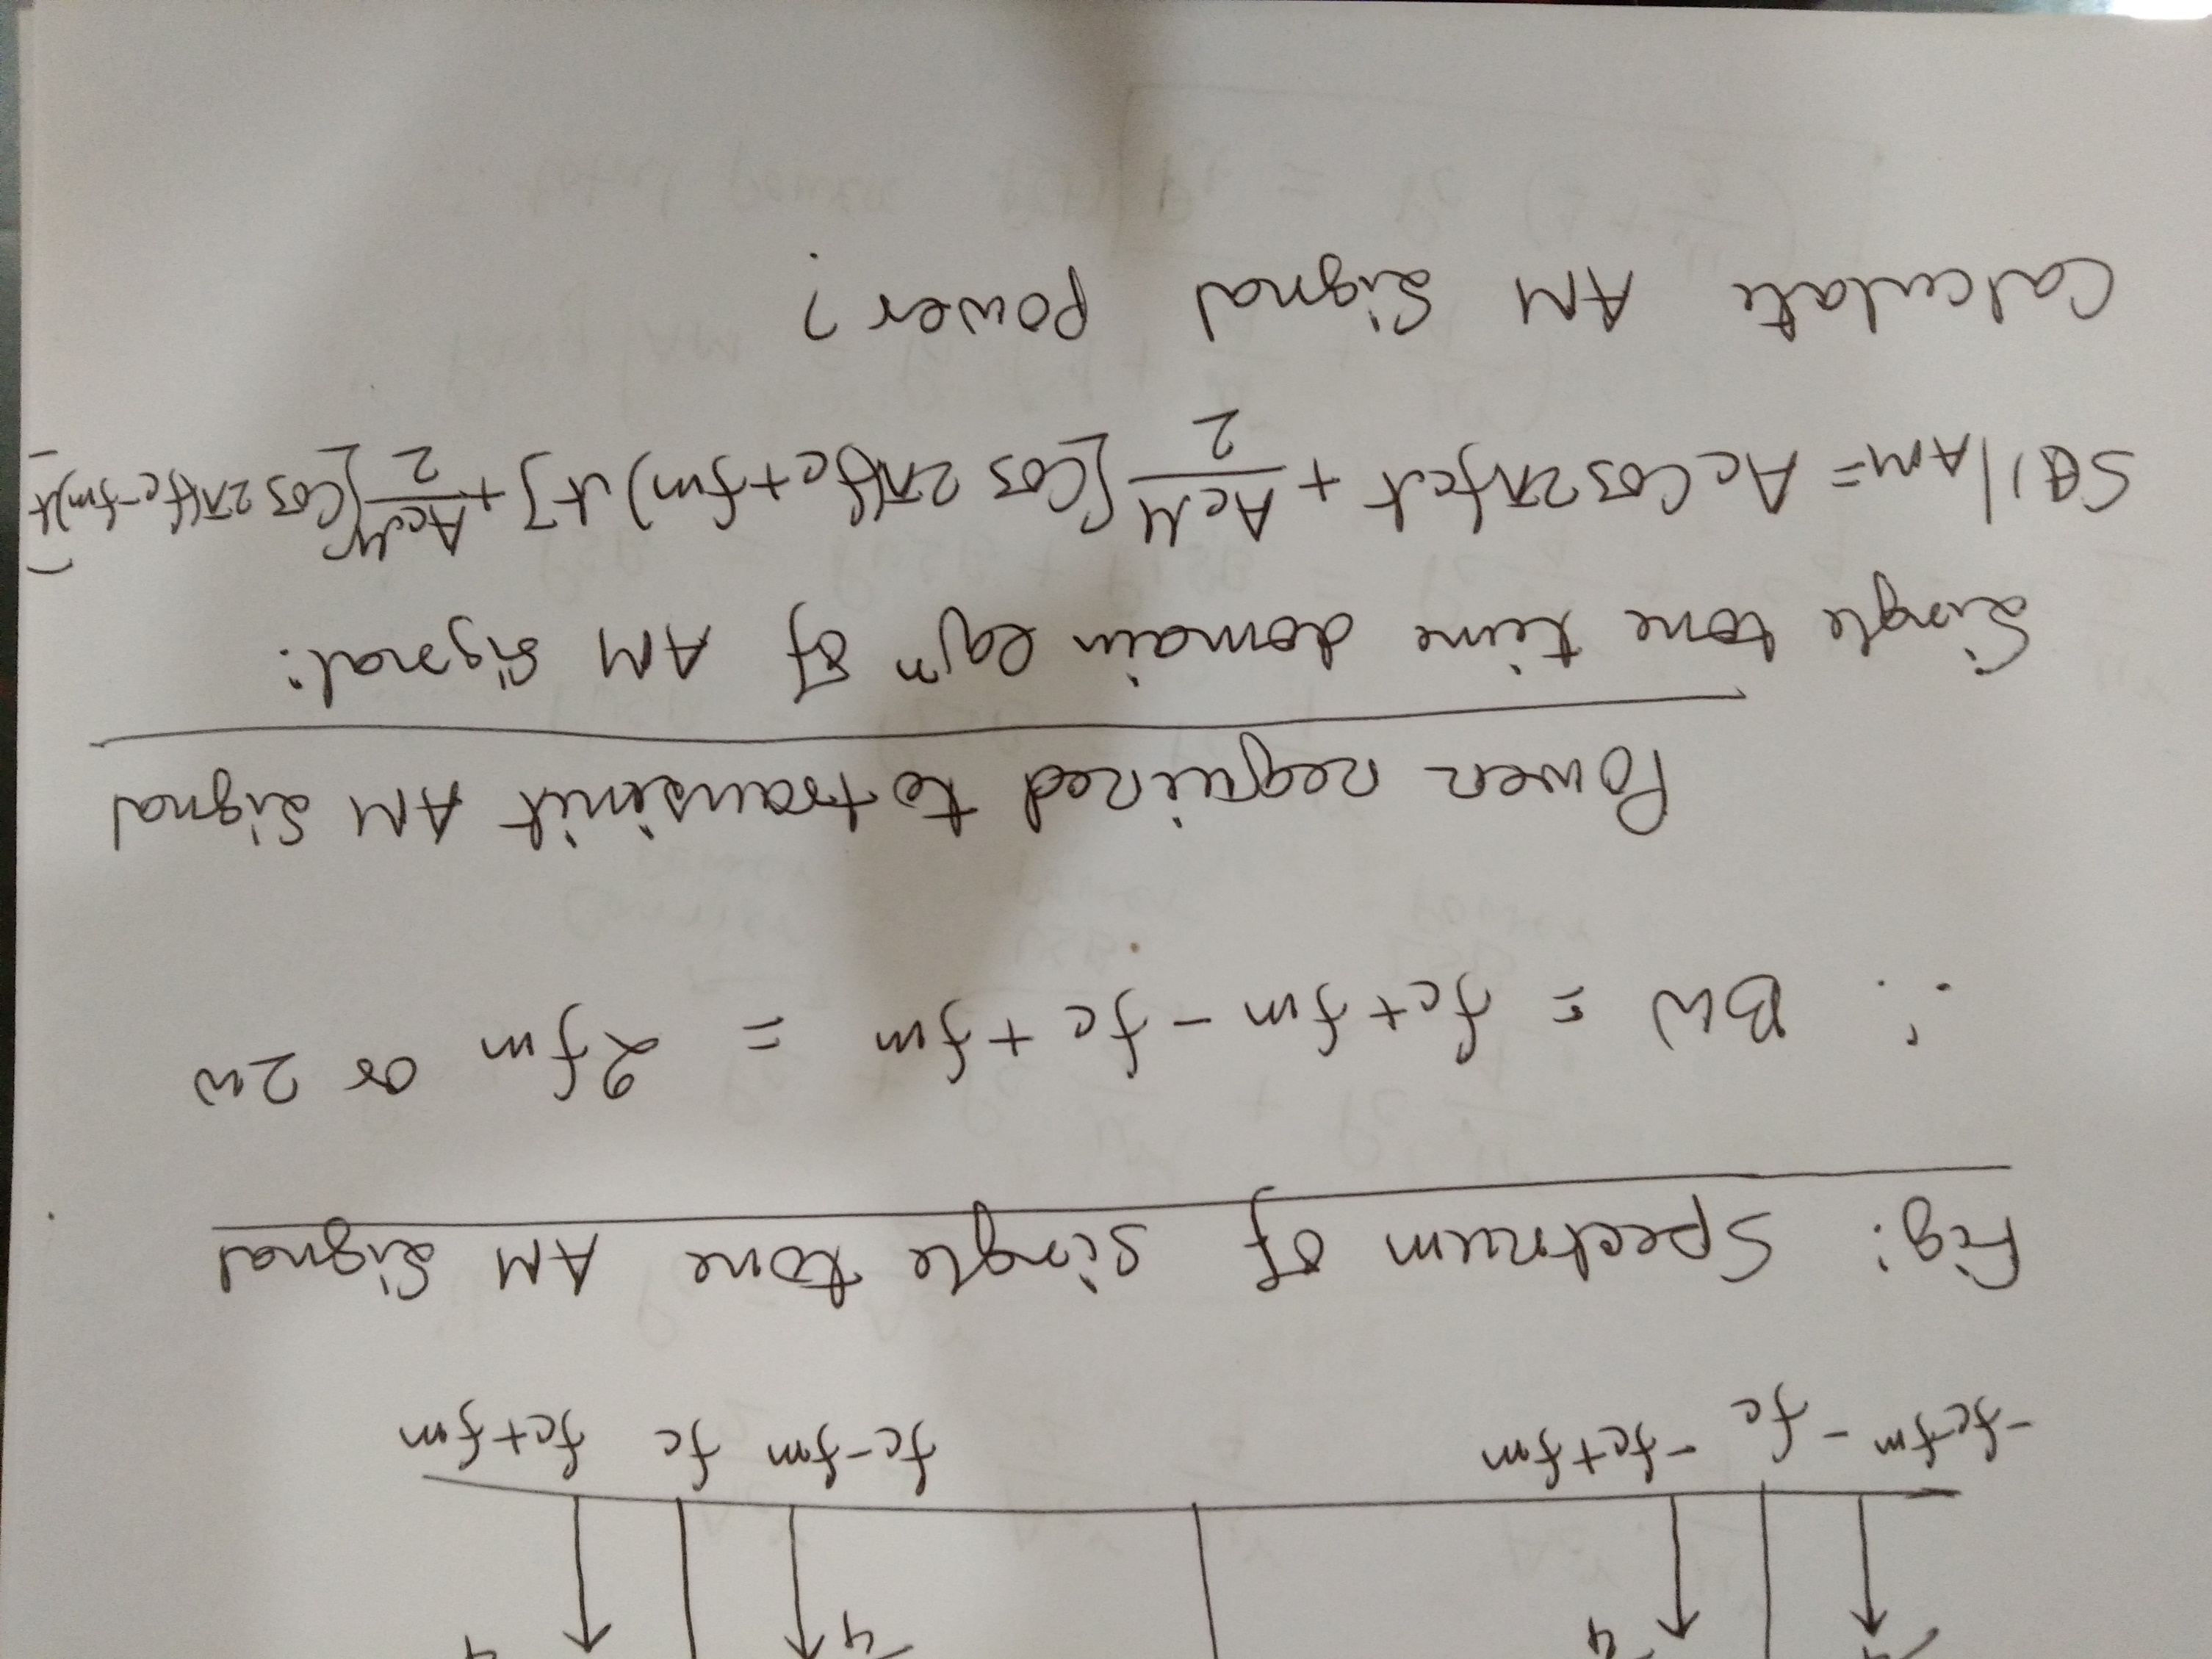 4 4 4
-fc-fm -fc -fc+fm fc-fm fc fc+fm
Fig: Spectrum of single tone AM Signal
∴ BW = fc+fm-fc+fm = 2fm or 2w
Power required to transmit AM signal
Single tone time domain eqn of AM signal:
S(t)|AM = Ac Cos2πfct + Acμ/2 [Cos 2π(fc+fm)t] + Acμ/2 [Cos 2π(fc-fm)t]
Calculate AM Signal Power?